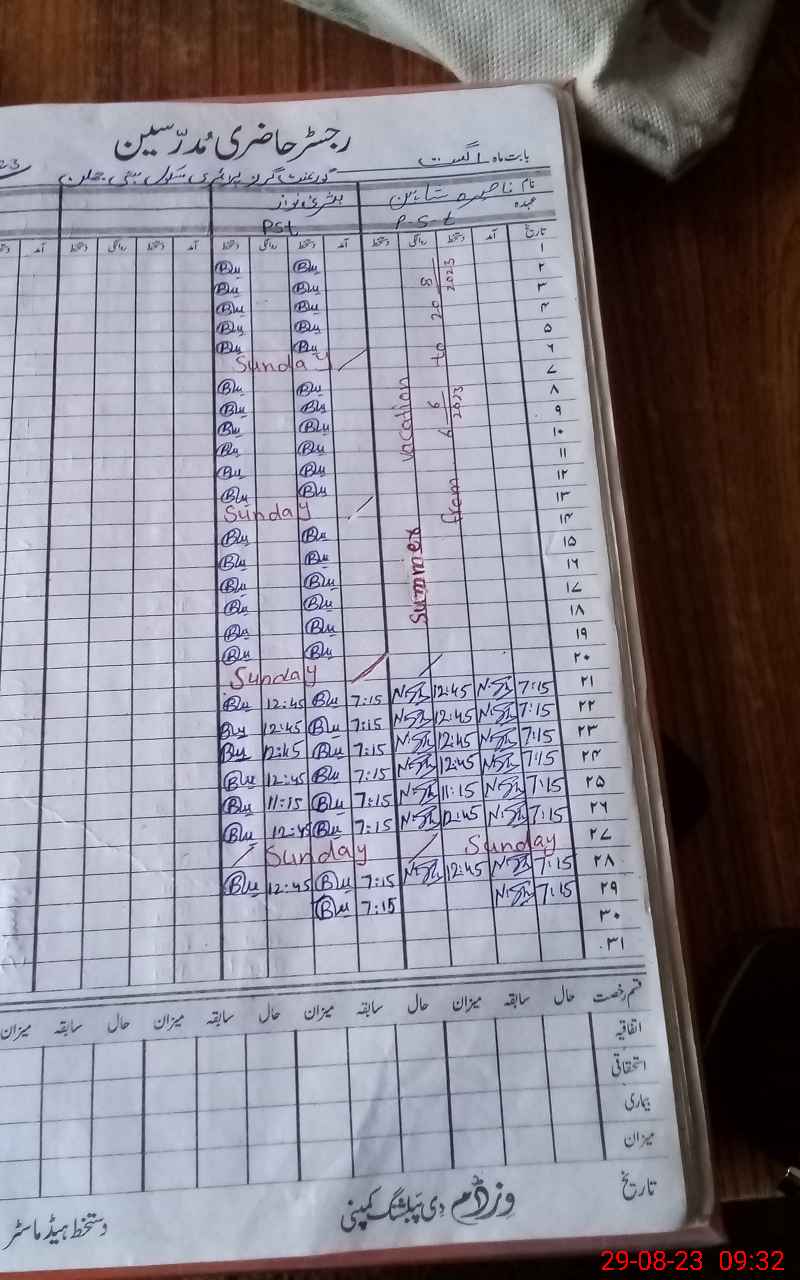 رجسٹر حاضری مُدرّسین
بابت ماہ اگست
گورنمنٹ گرلز پرائمری سکول
نام ناصرہ شاہین بشریٰ نواز
عہدہ P-S-t PSt
تاریخ آمد دستخط روانگی دستخط آمد دستخط روانگی دستخط آمد دستخط روانگی دستخط آمد دستخط
۱
۲ Bu Bu
۳ Bu Bu
۴ Bu Bu
۵ Bu Bu
۶ Bu Bu
۷ Sunday
۸ Bu Bu
۹ Bu Bu
۱۰ Bu Bu
۱۱ Bu Bu
۱۲ Bu Bu
۱۳ Bu Bu
۱۴ Sunday
۱۵ Bu Bu
۱۶ Bu Bu
۱۷ Bu Bu
۱۸ Bu Bu
۱۹ Bu Bu
۲۰ Bu Bu
Sunday
Summer vacation
from 6 6 2023 to 20 8 2023
۲۱ 7:15 N.Sh 12:45 N.Sh 7:15 Bu 12:45 Bu
۲۲ 7:15 N.Sh 12:45 N.Sh 7:15 Bu 12:45 Bu
۲۳ 7:15 N.Sh 12:45 N.Sh 7:15 Bu 12:45 Bu
۲۴ 7:15 N.Sh 12:45 N.Sh 7:15 Bu 12:45 Bu
۲۵ 7:15 N.Sh 11:15 N.Sh 7:15 Bu 11:15 Bu
۲۶ 7:15 N.Sh 12:45 N.Sh 7:15 Bu 12:45 Bu
۲۷ Sunday Sunday
۲۸ 7:15 N.Sh 12:45 N.Sh 7:15 Bu 12:45 Bu
۲۹ 7:15 N.Sh 7:15 Bu
۳۰
۳۱
قسم رخصت حال سابقہ میزان حال سابقہ میزان حال سابقہ میزان حال سابقہ میزان
اتفاقیہ
استحقاقی
بیماری
میزان
تاریخ
وزڈم دی پبلشنگ کمپنی
دستخط ہیڈ ماسٹر
29-08-23 09:32